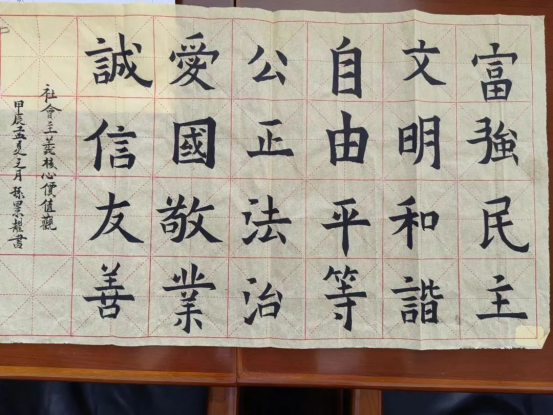 富強民主
文明和諧
自由平等
公正法治
愛國敬業
誠信友善
社會主義核心價值觀
甲辰孟夏之月
書